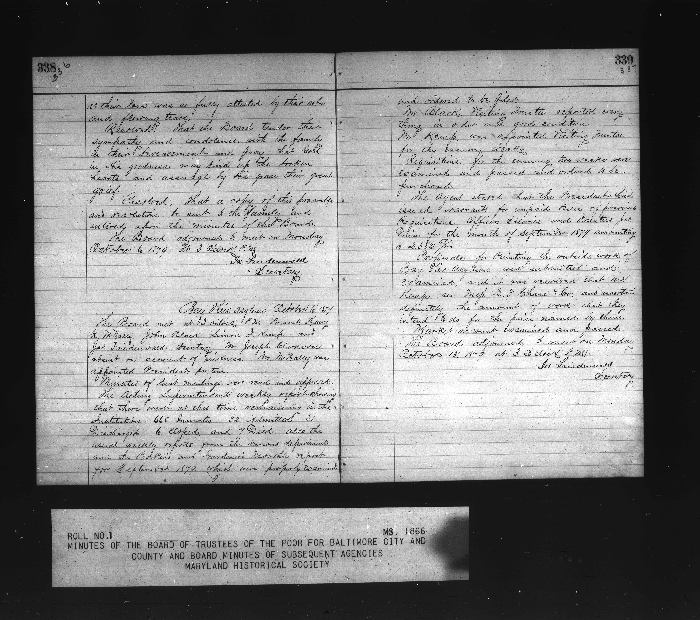 338
339
as their loss was so fully attested by their sobs
and flowing tears;
Resolved That the Board tender their
sympathy and condolence with the family
in their bereavements and pray that God
in his goodness may bind up the broken
hearts and assuage by his peace their great
grief.
Resolved, That a copy of this preamble
and resolution be sent to the family and
entered upon the minutes of this Board.
The Board adjourned to meet on Monday
October 6 1879 At 3 Oclock P.M.
Jas Friedenwald
Secretary
Bay View Asylum October 6 /79
The Board met at 3 Oclock P.M. Present
John Black Simon I Kemp and
Jas Friedenwald Secretary Mr Joseph
absent on account of sickness Mr
appointed President pro tem
Minutes of last meeting were read and approved.
The Acting Superintendents weekly report showing
that there were at this time remaining in the
Institution 665 Inmates 22 Admitted
Discharged 6 Eloped and Died. Also the
usual weekly reports from the various departments
and Gardeners Monthly report
for September 1879 which were properly examined
and ordered to be filed.
Mr Black, Visiting Trustee reported every
thing in order and good condition
Mr Kemp was appointed Visiting Trustee
for the ensuing week.
Requisitions for the ensuing two weeks were
examined and passed and ordered to be
purchased.
The Agent stated that the President had
issued warrants for unpaid bills
for the month of September 1879 amounting
to
Proposals for Painting the outside work of
Bay View Asylum were submitted and
examined, and it was resolved that Mr
Kemp see Messrs Chase & Co, and ascertain
definitely the amount of work that they
intend to do for the price named by them.
account examined and passed
The Board adjourned to meet on Monday
October 13 1879 at 3 Oclock P.M.
Jas Friedenwald
Secretary
ROLL NO.1 MS. 1866
MINUTES OF THE BOARD OF TRUSTEES OF THE POOR FOR BALTIMORE CITY AND
COUNTY AND BOARD MINUTES OF SUBSEQUENT AGENCIES
MARYLAND HISTORICAL SOCIETY